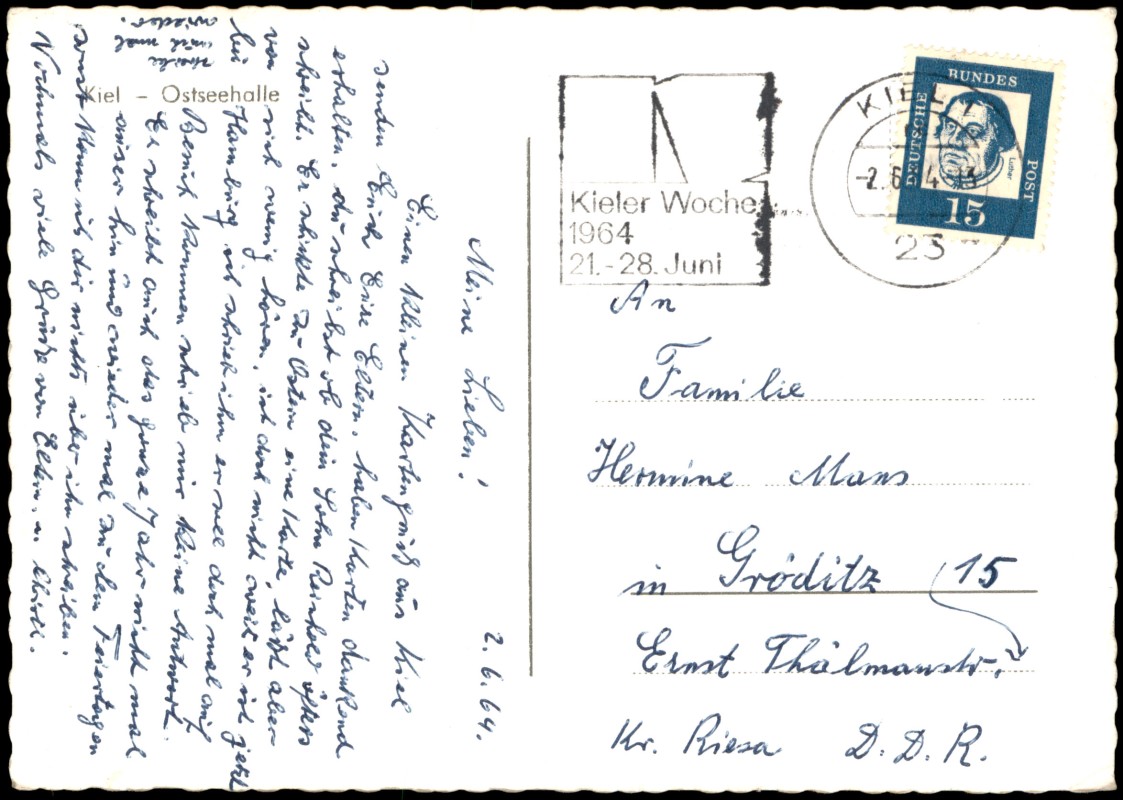 Kiel – Ostseehalle
2.6.64.
Meine Lieben!
Einen kleinen Kartengruß aus Kiel
senden Euch Eure Eltern, haben Karten dankend
erhalten, du schreibst ob dein Sohn Reinhold öfters
schreibt. Er schickte zu Ostern eine Karte, läßt aber
von sich wenig hören, ist doch nicht weit er ist jetzt
bei Hamburg ich schrieb ihm er soll doch mal auf
Besuch kommen schrieb mir keine Antwort.
Er schreibt auch das ganze Jahr nicht mal
auser hin und wieder mal zu den Feiertagen
sonst kann ich dir nichts über ihn schreiben.
Nochmals viele Grüße von Eltern u.
schreibe
auch mal
wieder.
Kieler Woche
1964
21.-28. Juni
KIEL 1
-2.6.64-13
23
DEUTSCHE BUNDESPOST
Luther
15
An
Familie
Hermine Mans
in Gröditz
15
Ernst Thälmanstr.
Kr. Riesa D.D.R.